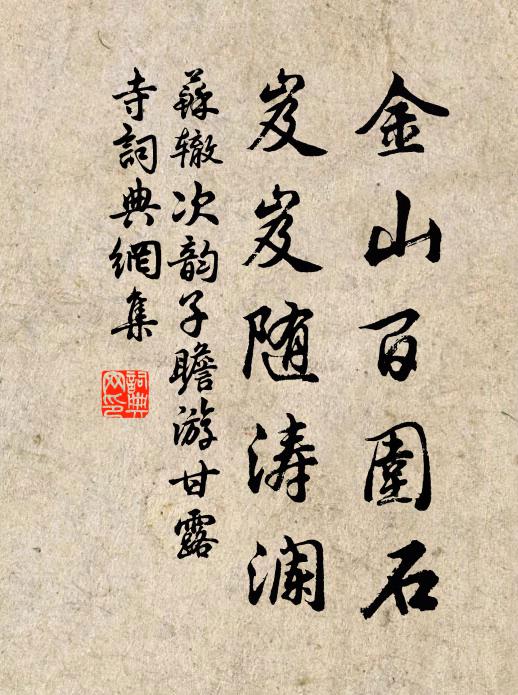 金山百围石
岌岌随涛澜
苏辙次韵子瞻游甘露
寺詞典網集
詞典網印